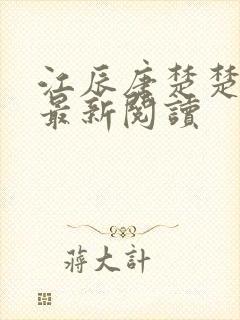 江辰唐楚楚
最新閱讀
蔣大計